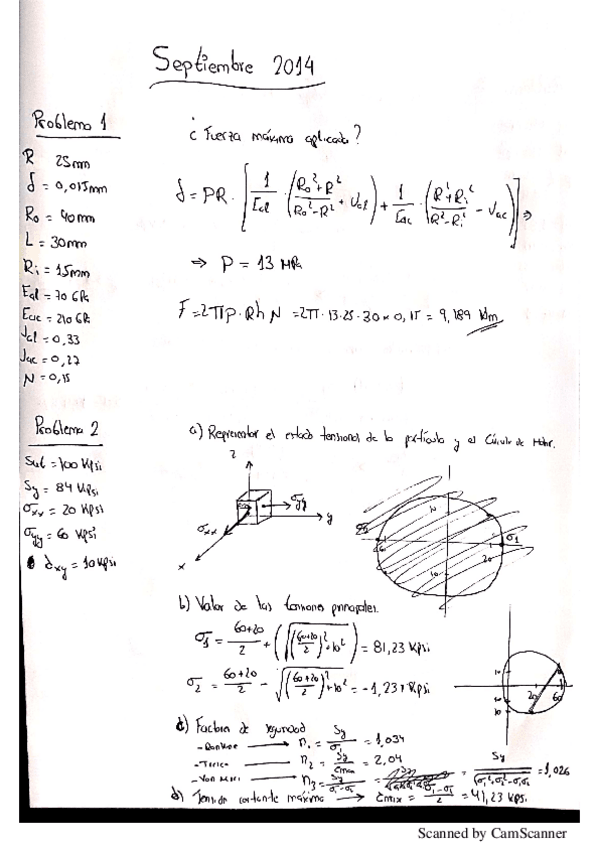 Septiembre 2014
Problema 1
R 25mm
δ = 0,015mm
Ro = 40mm
L = 30mm
Ri = 15mm
Eal = 70 GPa
Eac = 210 GPa
νal = 0,33
νac = 0,27
N = 0,15
¿Fuerza máxima aplicada?
δ = PR · [1/Eal · (Ro²+R²/Ro²-R² + νal) + 1/Eac · (R²+Ri²/R²-Ri² - νac)] ⇒
⇒ P = 13 MPa
F = 2πp · R h N = 2π · 13 · 25 · 30 × 0,15 = 9,189
Problema 2
Sut = 100 Kpsi
Sy = 84 Kpsi
σxx = 20 Kpsi
σyy = 60 Kpsi
τxy = 10 Kpsi
a) Representar el estado tensional de la partícula y el Círculo de Mohr.
z
σyy
y
σxx
x
σ1
20
10
b) Valor de las tensiones principales.
σ1 = 60+20/2 + (√(60+20/2)²+10²) = 81,23 Kpsi
σ2 = 60+20/2 - √(60+20/2)²+10² = -1,231 Kpsi
10
20 60
10
c) Factor de seguridad
- Rankine → n1 = Sy/σ1 = 1,034
- Tresca → n2 = Sy/τmax = 2,04
- Von Mises → n3 = Sy/√σ1²+σ2²-σ1σ2 = 1,026
d) Tensión cortante máxima → τmax = σ1-σ2/2 = 41,23 Kpsi.
Scanned by CamScanner